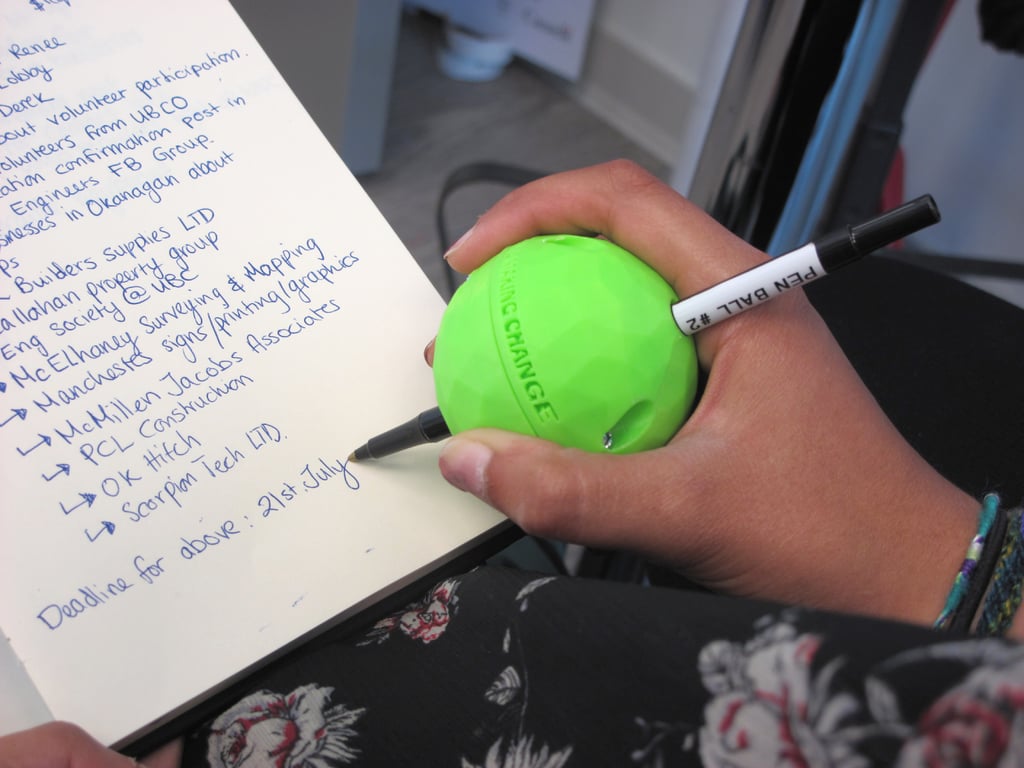 Renee
Lobby
Derek
about volunteer participation.
volunteers from UBCO
confirmation post in
Engineers FB Group.
in Okanagan about
Builders supplies LTD
property group
Eng society @ UBC
McElhaney Surveying & Mapping
Manchester signs/printing/graphics
McMillen Jacobs Associates
PCL Construction
OK Hitch
Scorpion Tech LTD.
Deadline for above: 21st July
CHANGE
PEN BALL #2